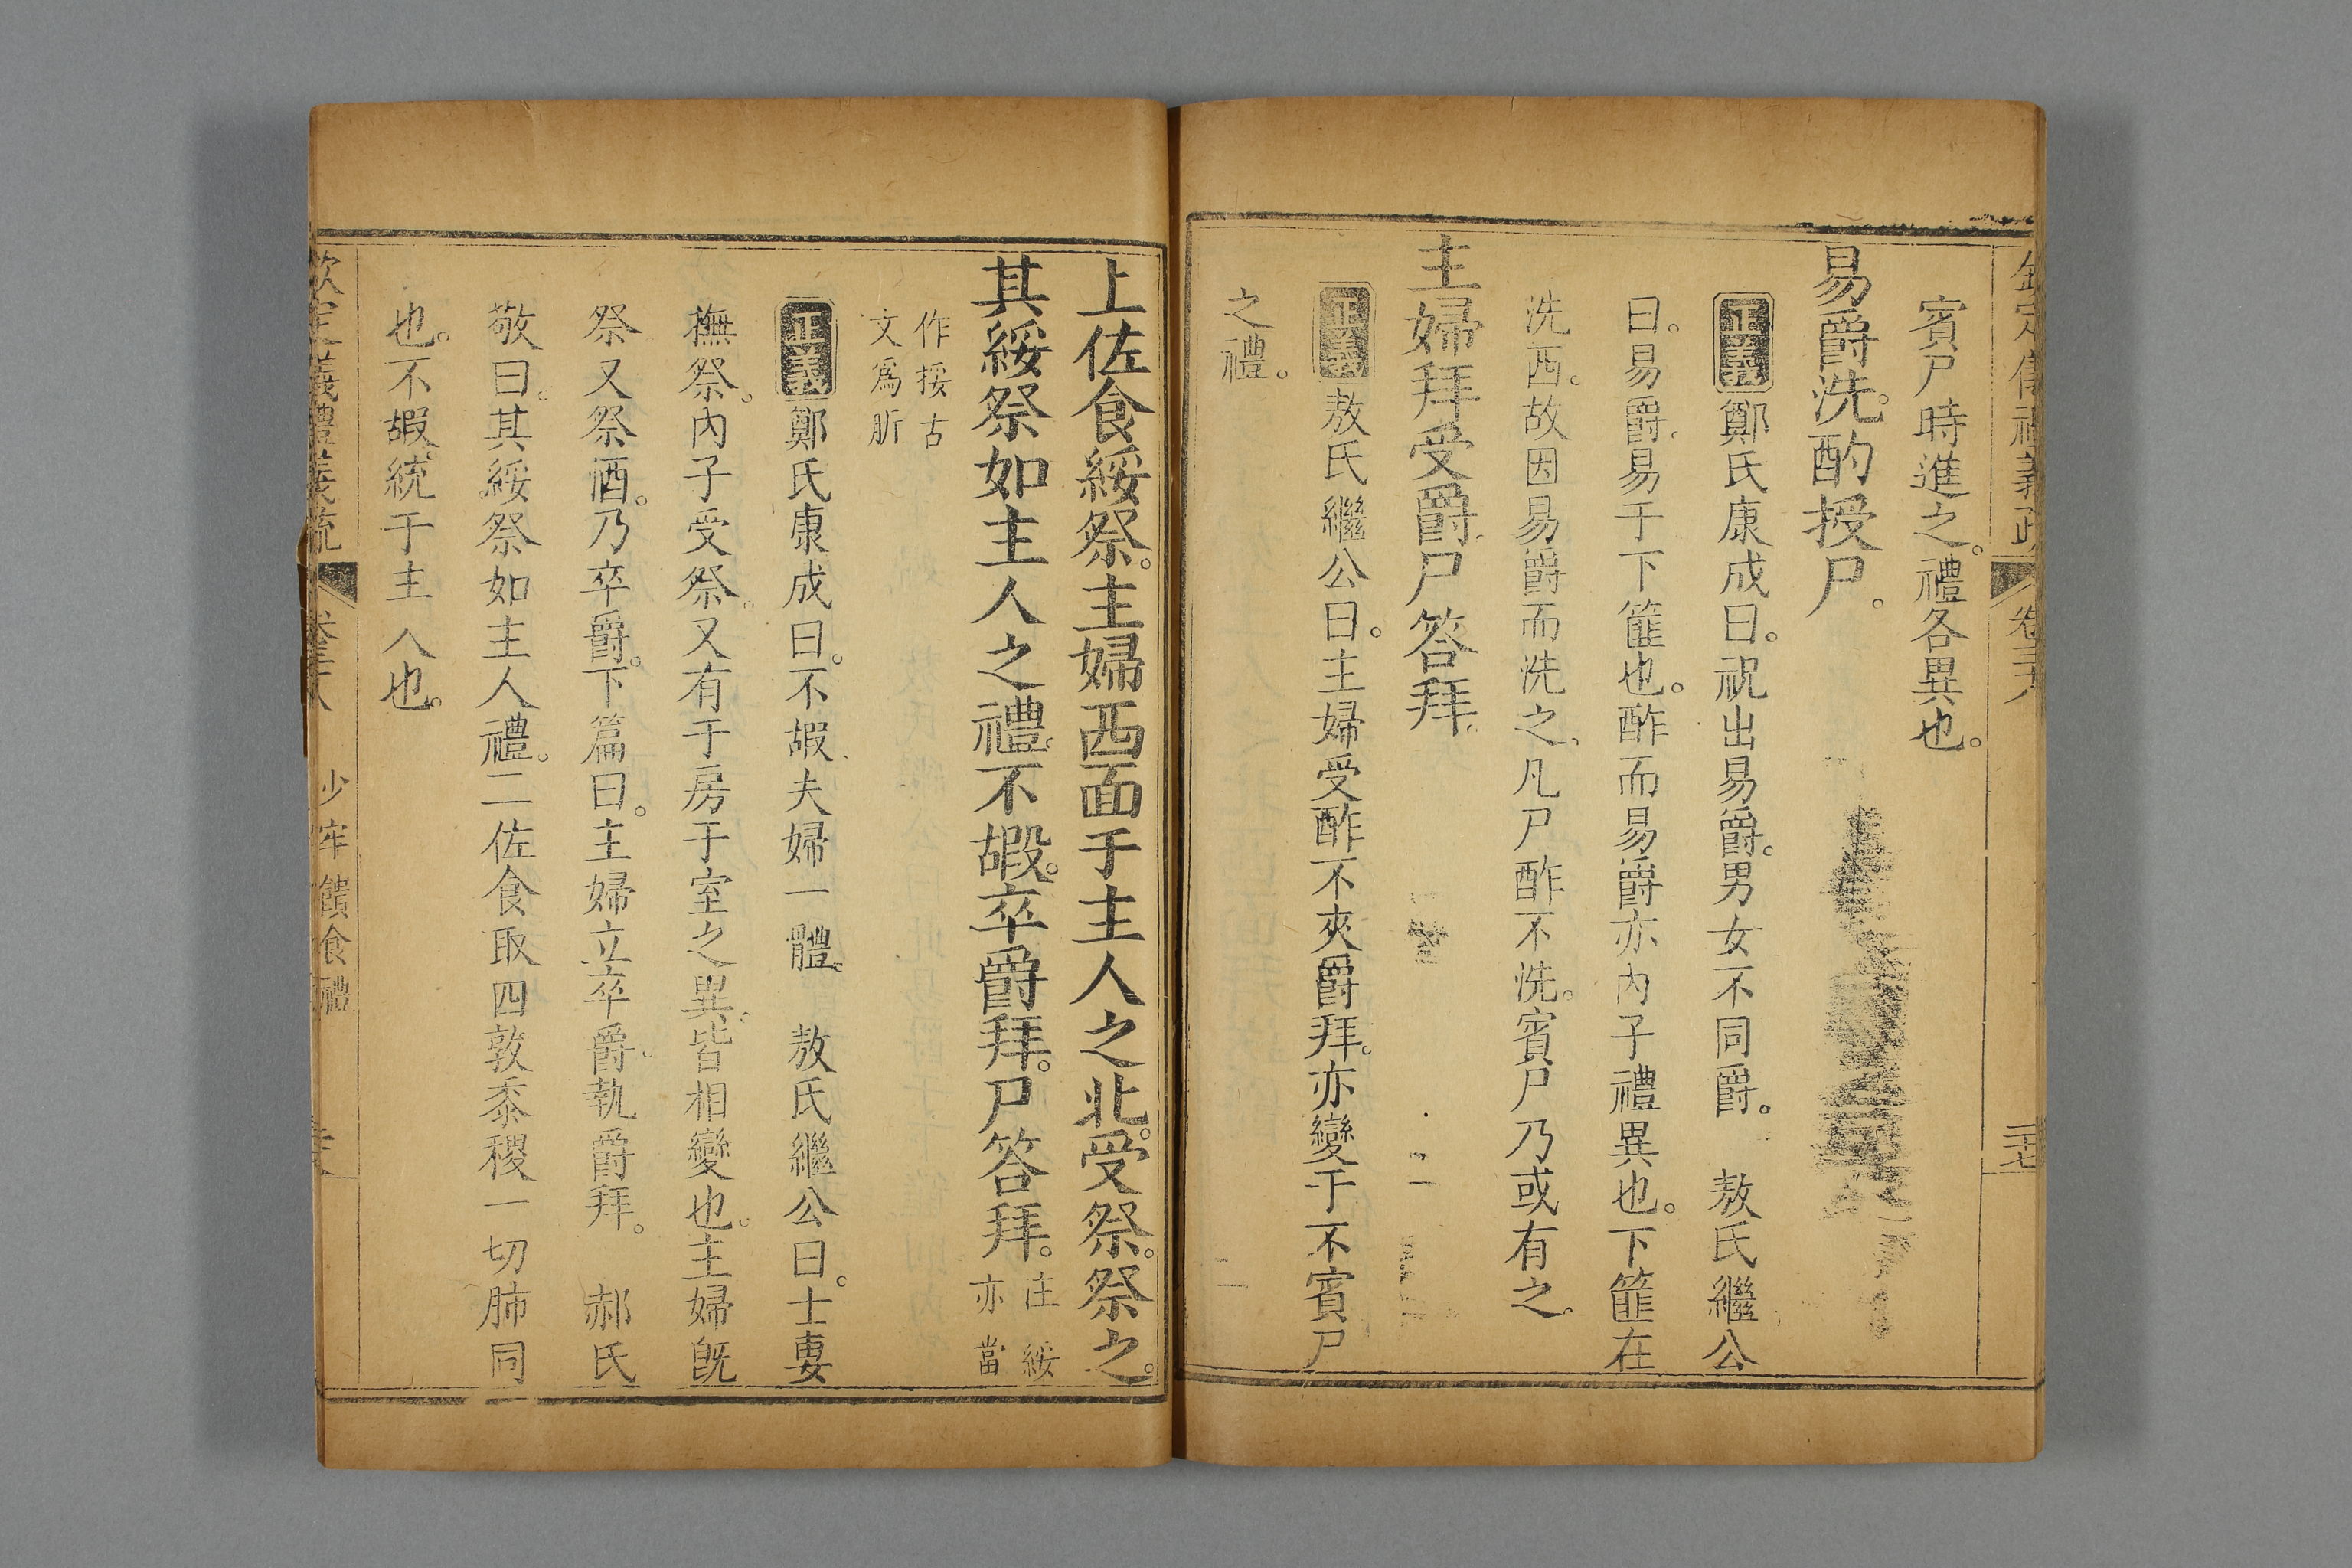 賓尸時進之。禮各異也。
易爵洗。酌授尸。
正義鄭氏康成曰。祝出易爵。男女不同爵。　敖氏繼公
曰。易爵。易于下篚也。酢而易爵亦內子禮異也。下篚在
洗西。故因易爵而洗之。凡尸酢不洗。賓尸乃或有之。
主婦拜受爵。尸答拜。
正義敖氏繼公曰。主婦受酢不夾爵拜。亦變于不賓尸
之禮。
上佐食綏祭。主婦西面于主人之北。受祭。祭之。
其綏祭如主人之禮。不嘏。卒爵拜。尸答拜。注綏亦當
作挼古文爲肵
正義鄭氏康成曰。不嘏。夫婦一體。　敖氏繼公曰。士妻
撫祭。內子受祭。又有于房于室之異。皆相變也。主婦旣
祭又祭酒。乃卒爵。下篇曰。主婦立卒爵。執爵拜。　郝氏
敬曰。其綏祭如主人禮。二佐食取四敦黍稷一切肺同
也。不嘏。統于主人也。
欽定儀禮義疏
少牢饋食禮